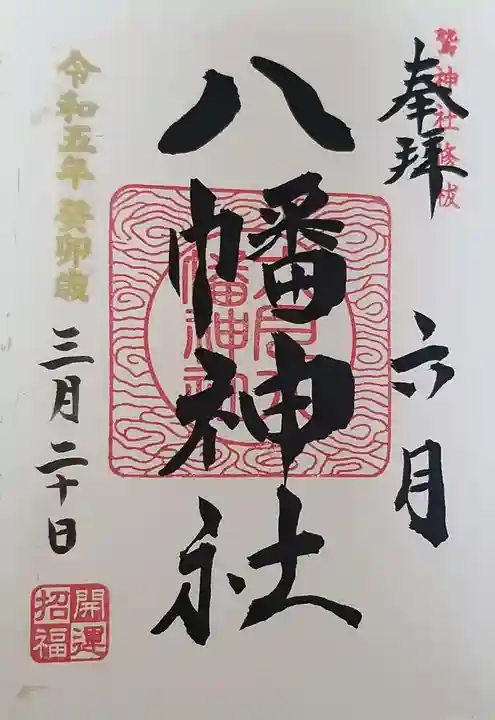 鷲神社修祓
奉拝
六月
八幡神社
令和五年 癸卯歳
三月二十日
開運
招福